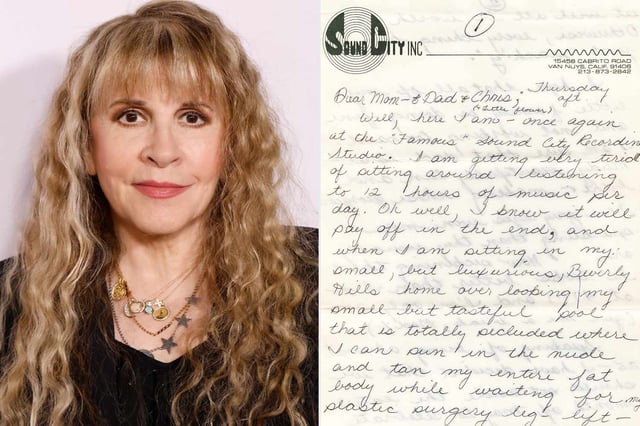 ①
SOUND CITY INC
15456 CABRITO ROAD
VAN NUYS, CALIF. 91406
213-873-2842
Thursday
aft
Dear Mom - & Dad & Chris;
(& little flower)
Well, here I am - once again
at the "Famous" Sound City Recording
Studio. I am getting very tired
of sitting around listening
to 12 hours of music per
day. Oh well, I know it will
pay off in the end, and
when I am sitting in my
small, but luxurious, Beverly
Hills home over looking my
small but tasteful pool
that is totally secluded where
I can sun in the nude
and tan my entire fat
body while waiting for my
plastic surgery leg lift -